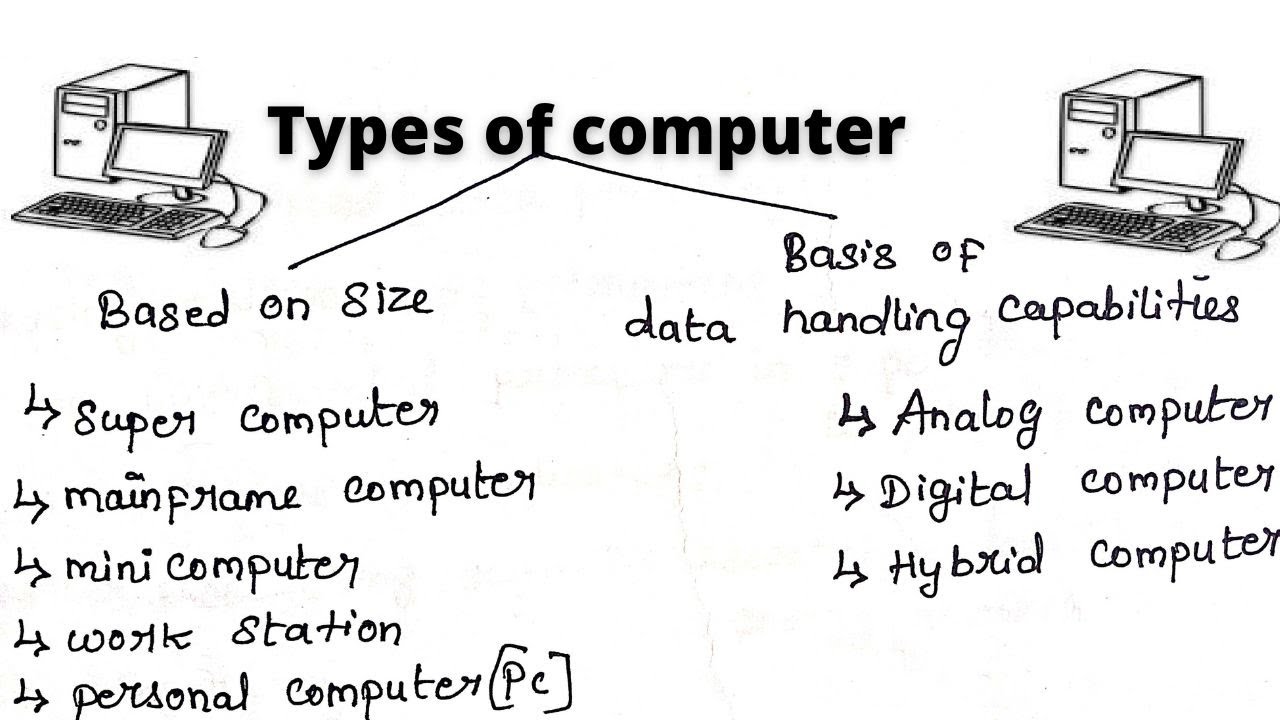 Types of computer
Based on Size
Basis of
data handling capabilities
↳ Super computer
↳ mainframe computer
↳ mini computer
↳ work station
↳ personal computer [Pc]
↳ Analog computer
↳ Digital computer
↳ Hybrid computer